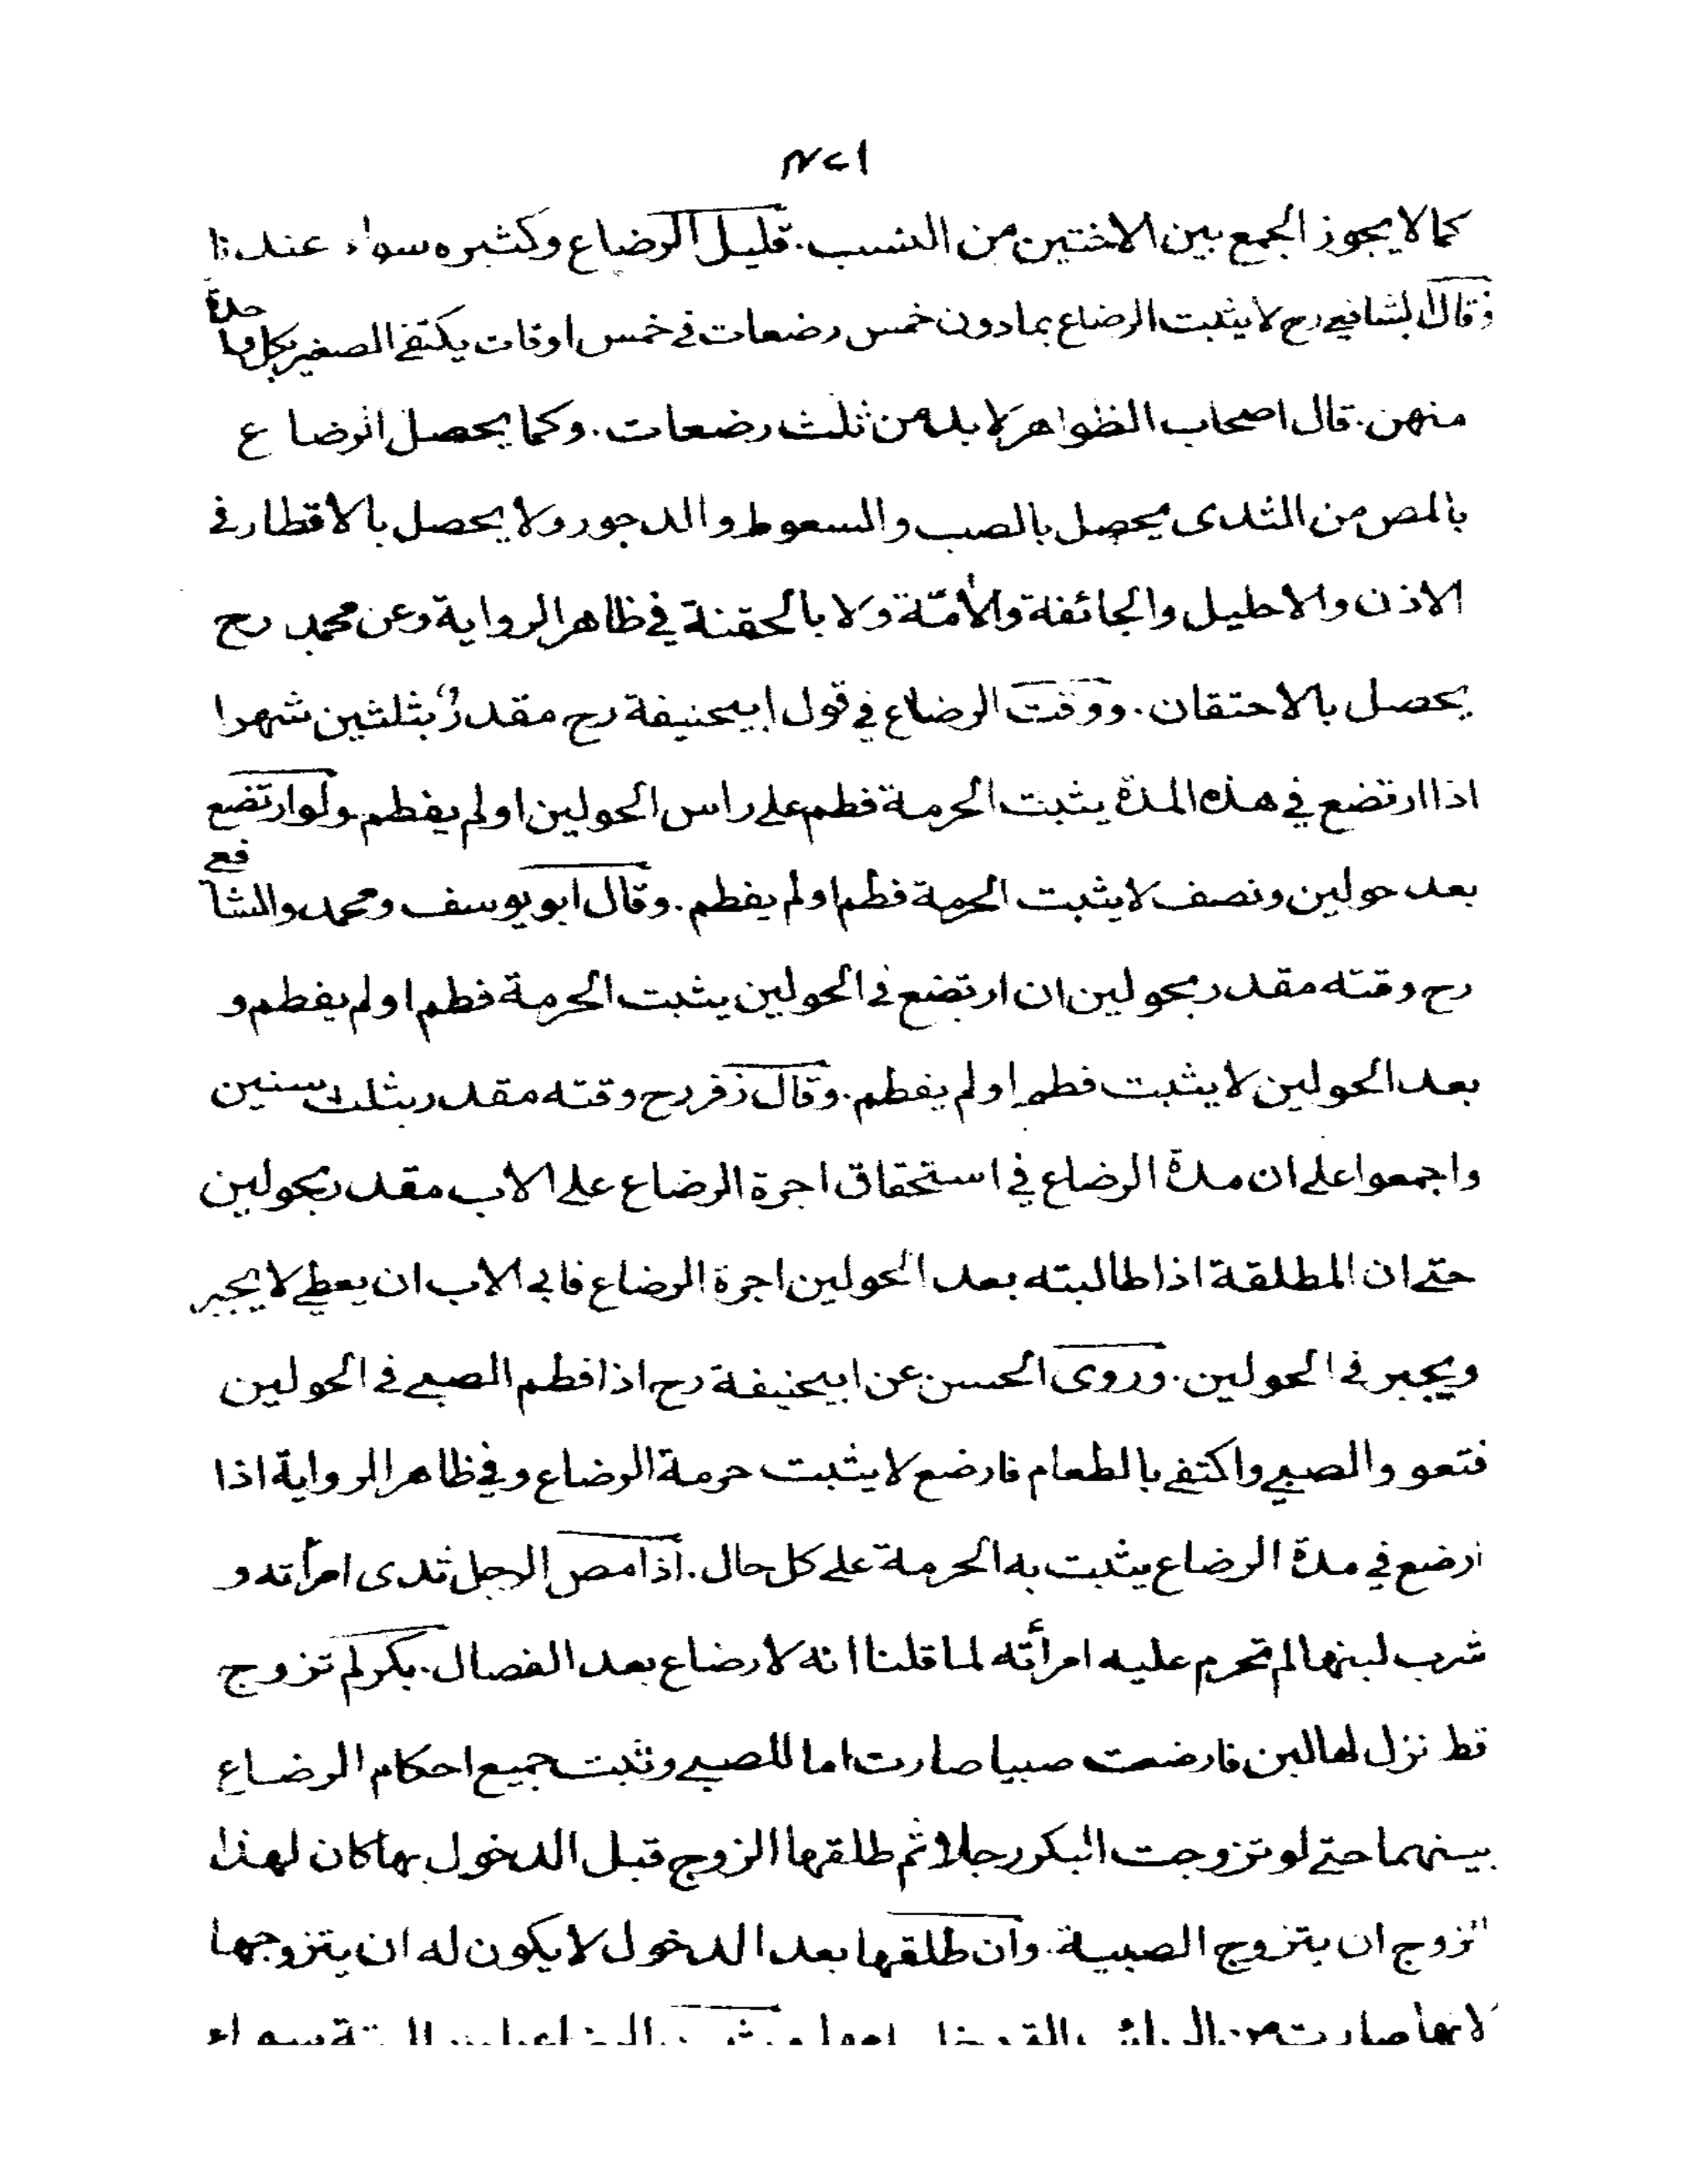 ۴۲۱
كما لا يجوز الجمع بين الاختين من النسب. قليل الرضاع وكثيره سواء عندنا
وقال الشافعي رح لا يثبت الرضاع بما دون خمس رضعات في خمس اوقات يكتفي الصغير بكل واحدة
منهن. قال اصحاب الظواهر لا بد من ثلث رضعات. وكما يحصل الرضاع
بالمص من الثدى يحصل بالصب والسعوط والدجور ولا يحصل بالاقطار في
الاذن والاحليل والجائفة والأمّة ولا بالحقنة في ظاهر الرواية وعن محمد رح
يحصل بالاحتقان. ووقت الرضاع في قول ابيحنيفة رح مقدر بثلثين شهرا
اذا ارتضع في هذه المدة يثبت الحرمة فطم على راس الحولين او لم يفطم ولو ارتضع
بعد حولين ونصف لا يثبت الحرمة فطم او لم يفطم. وقال ابو يوسف ومحمد والشافعي
رح وقته مقدر بحولين ان ارتضع في الحولين يثبت الحرمة فطم او لم يفطم و
بعد الحولين لا يثبت فطم او لم يفطم. وقال زفر رح وقته مقدر بثلث سنين
واجمعوا على ان مدة الرضاع في استحقاق اجرة الرضاع على الاب مقدر بحولين
حتى ان المطلقة اذا طالبته بعد الحولين اجرة الرضاع فابى الاب ان يعطى لا يجبر
ويجبر في الحولين. وروى الحسن عن ابيحنيفة رح اذا فطم الصبي في الحولين
فتعو والصبي واكتفى بالطعام فارضع لا يثبت حرمة الرضاع وفي ظاهر الرواية اذا
ارضع في مدة الرضاع يثبت به الحرمة على كل حال. اذا مص الرجل ثدى امرأته و
شرب لبنها لم تحرم عليه امرأته لما قلنا انه لا رضاع بعد الفصال. بكر لم تزوج
قط نزل لها لبن فارضعت صبيا صارت اما للصبي وثبت جميع احكام الرضاع
بينهما حتى لو تزوجت البكر رجلا ثم طلقها الزوج قبل الدخول بها كان لهذا
الزوج ان يتزوج الصبية. وان طلقها بعد الدخول لا يكون له ان يتزوجها
لانها صارت من